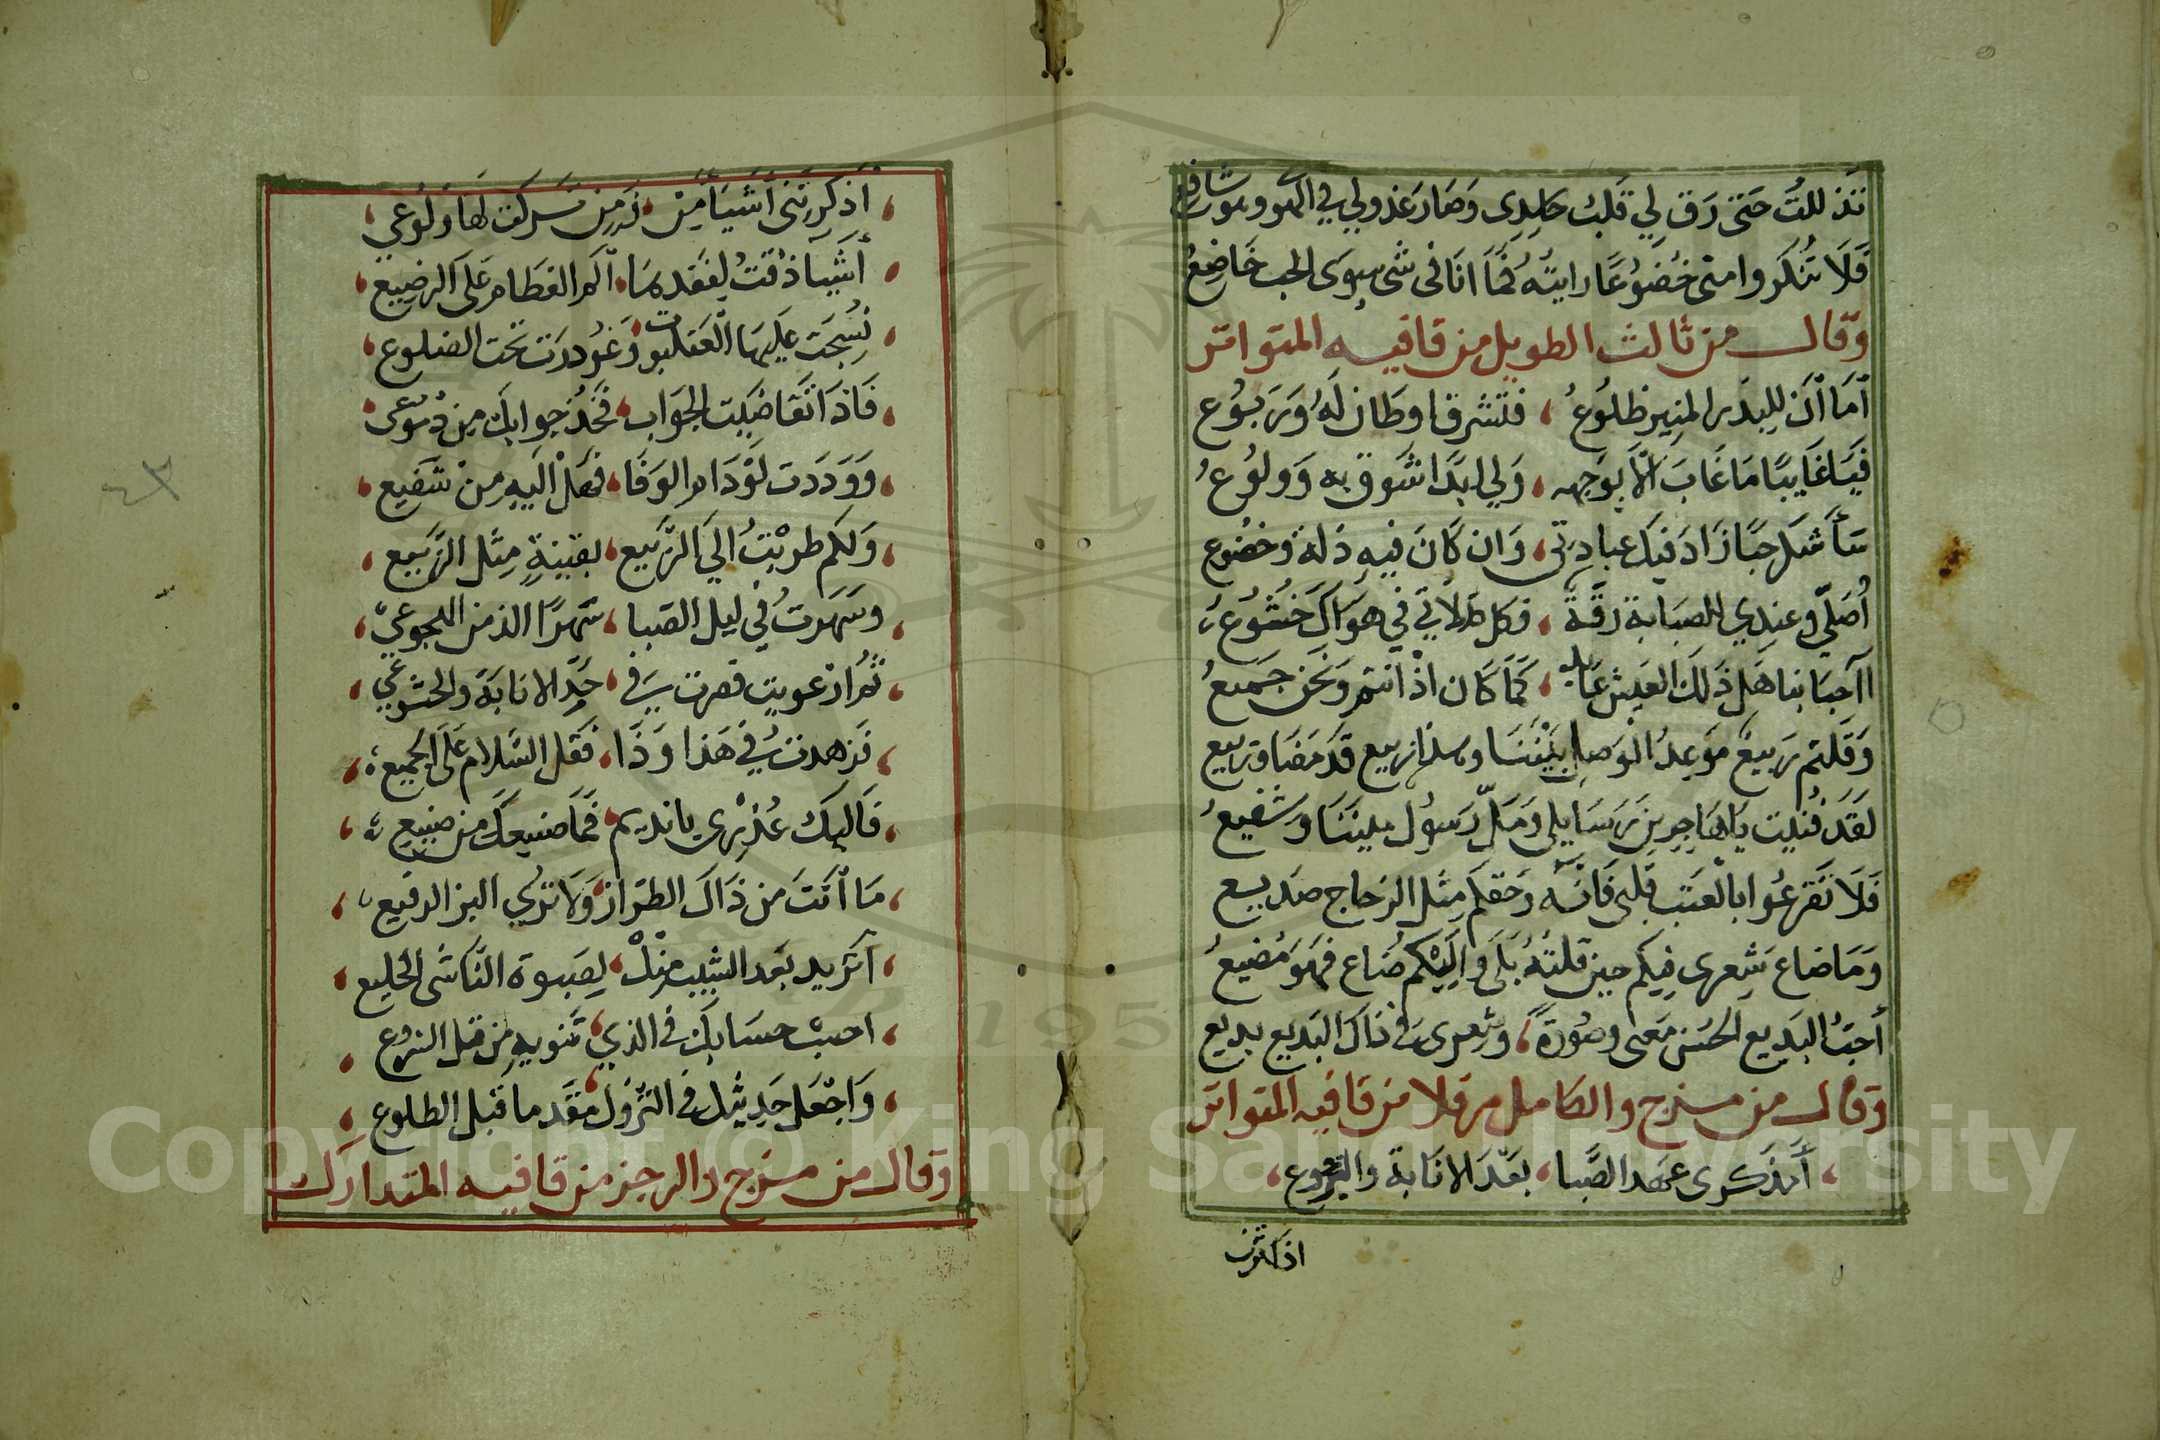 تَذللتُ حَتى رَق لِي قَلبُ حاسِدِى وَصَارَ عَذولِي فِي الهَوى وهو شافع
فَلَا تُنكروا منى خُضُوعًا رايتُه فَمَا انَا فى شى سِوَى الحب خَاضِعُ
وقال من ثالث الطويل من قافيه المتواتر
أمَا آنَ لِلبَدرِ المنِيرِ طُلوُعُ ، فتشرق اوطان لَهُ وَرَبوُع
فيَا غَايبًا مَا غَابَ إلّا بوَجهِه ، وَلِي ابدًا شَوق به وَولوُعُ
سَأشكر حبًا زَادَ فيك عبادتى ، وَان كَانَ فيه ذلة وخضوع
أُصَلّي وعندِي للصبَابة رقّة ، فكل صلاتي في هوَاكَ خشُوُع
أأحبَابنا هَل ذَلك العَيش عَايد ، كَمَا كان اذ انتم وَنَحن جَميعُ
وَقَلتم رَبيعُ مَوعدُ الوَصل بَيْنَنَا وهذا ربيع قَد مَضَا وربيع
لقَد فُنيت يَا هَاجِرِين رَسَايلى وَمَلّ رَسوُل بيننَا وشفيعُ
فَلَا تَقرعُوا بالعَتب قَلبى فَانّه وَحَقكم مِثل الزجَاج صَديع
وَمَا ضاع شِعرى فيكم حين قلتُهُ بَلَى وَإليْكم ضَاع فهوَ مُضيعُ
أحبُ البَدِيع الحُسن مَعنى وصُورَةً ، وشِعرى فى ذاكَ البَديع بديع
وقال من مسزج والكامل مرفلا من قافيه المتواتر
، أتَذكرى عَهد الصَّبا ، بعَدَ الانَابة والرجوع ،
اذكرتن
، أذكَرِتَنى أشيَآ مِن ، زَمِن تركت لهَا ولُوعِي ،
، أشيَآ ذقتُ لِفقدهَا ، ألم الفطَام عَلَى الرضِيع ،
، نُسِجَت عَليهَا العَنكبوت ، وَغُودرَت تحت الضلوع ،
، فَاذَا تقَاضَيت الجوَاب ، فَخُذ جوابك من دُموُعى ،
، وَوَدَدت لَوْ دَام الوَفَا ، فَهَل الَيهِ من شَفِيع ،
، وَلكم طربْتُ الِيَ الرَّبَيع ، بقَينةٍ مِثل الرَّبَيع ،
، وسَهَرتُ فى ليل الصَبا ، سَهرًا الذ من الهجوعِ ،
، ثُمَ ارْعويت فصرت فى ، حَدّ الانابَة والخشوعِ ،
، نَزهدت فِي هَذا وَذَا ، فقل السَّلام عَلَى الجَميع ،
، فَاليك عُذرِى يا نديم ، فَمَا صنيعك من صنيع ،
، مَا أنَتَ من ذَاكَ الطرَاز ، وَلَا تري البز الرفيع ،
، أتريد بَعد الشيب منك ، لِصَبوة النَّاشى الخليع ،
، احسِبْ حسَابك فى الذي ، تَنويهِ من قبل الشروع ،
، وَاجْعَل حَدِيثك فى النُزُول ، مقَدما قَبل الطلوع ،
وقال من مسزج والرجز من قافيه المتدارك
٤٣
Copyright © King Saud University
1957